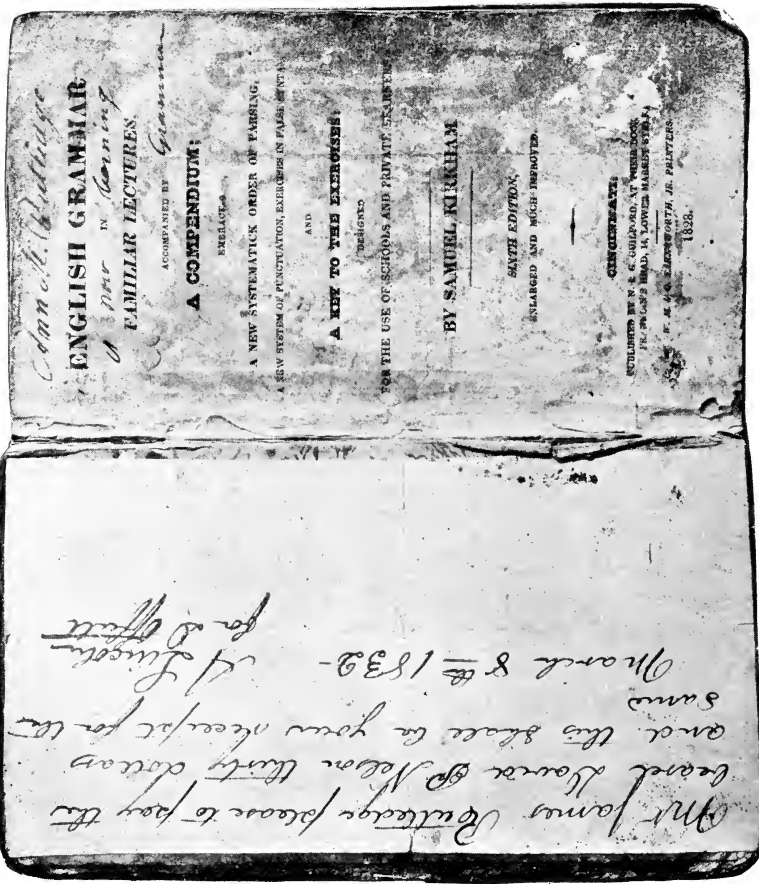 Ann M. Rutledge
ENGLISH GRAMMAR
is now IN learning
FAMILIAR LECTURES,
ACCOMPANIED BY Grammar
A COMPENDIUM;
EMBRACING
A NEW SYSTEMATICK ORDER OF PARSING,
A NEW SYSTEM OF PUNCTUATION, EXERCISES IN FALSE SYNTAX,
AND
A KEY TO THE EXERCISES:
DESIGNED
FOR THE USE OF SCHOOLS AND PRIVATE LEARNERS.
BY SAMUEL KIRKHAM
SIXTH EDITION,
ENLARGED AND MUCH IMPROVED.
CINCINNATI:
PUBLISHED BY N. & G. GUILFORD, AT THEIR BOOK
HEAD, 14, LOWER MARKET STREET
W. M. & O. FARNSWORTH, JR. PRINTERS.
1828.
Mr James Rutledge please to pay the
bearer David P Nelson thirty dollars
and this shall be your receipt for the
same
March 8th 1832- A Lincoln
for D Offutt